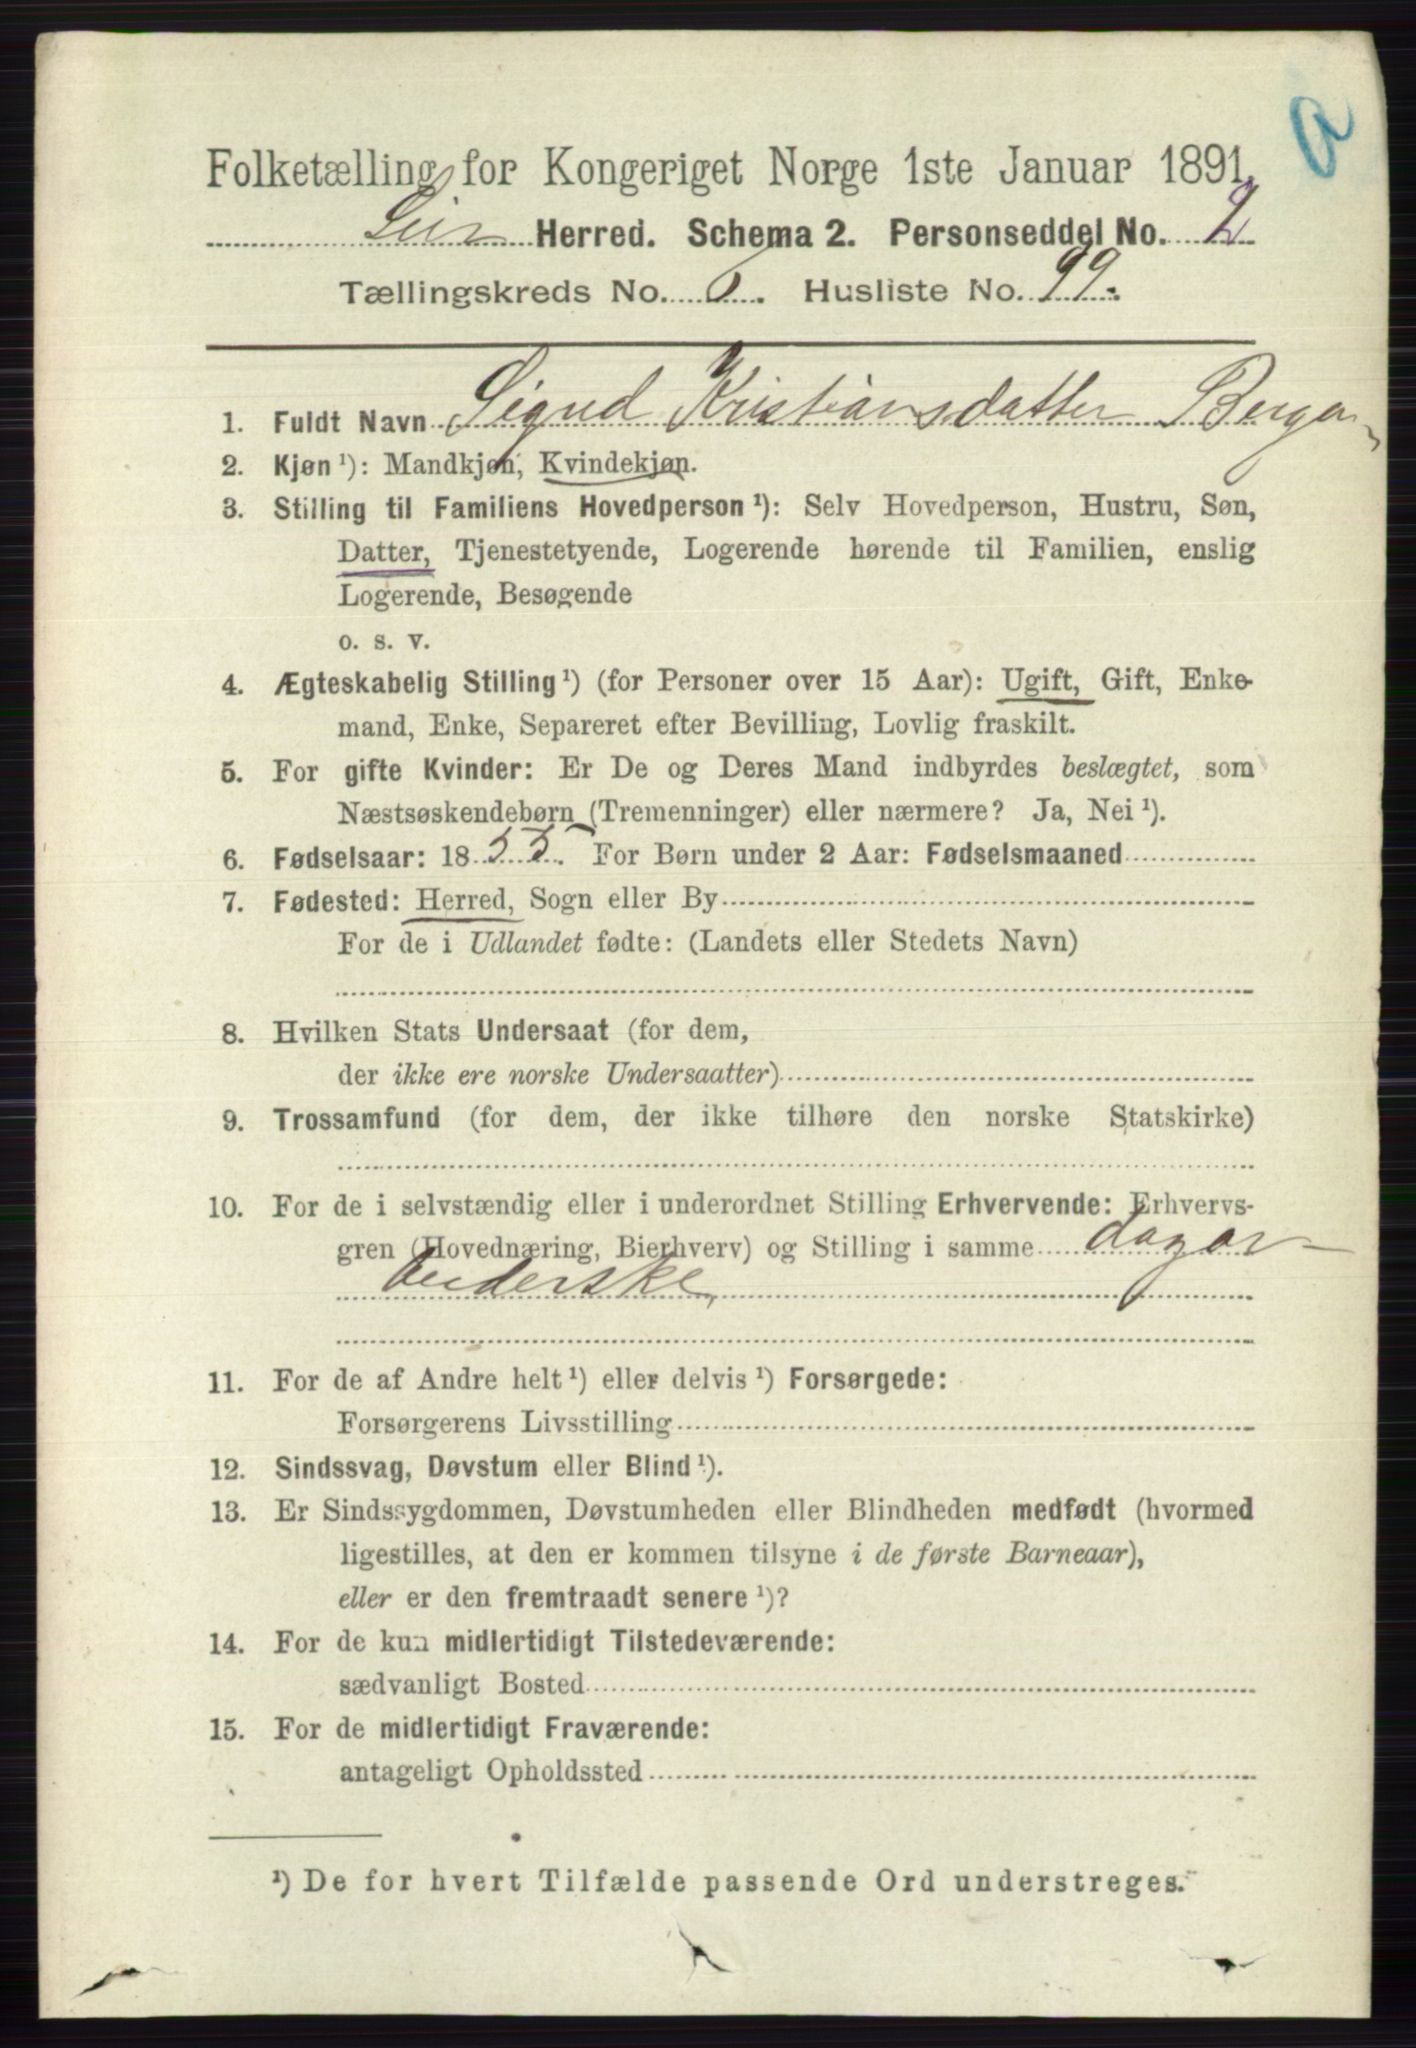 a
Folketælling for Kongeriget Norge 1ste Januar 1891.
Lier Herred. Schema 2. Personseddel No. 2
Tællingskreds No. Husliste No. 99.
1. Fuldt Navn Sigrid Kristiansdatter
2. Kjøn ¹): Mandkjøn, Kvindekjøn.
3. Stilling til Familiens Hovedperson ¹): Selv Hovedperson, Hustru, Søn,
Datter, Tjenestetyende, Logerende hørende til Familien, enslig
Logerende, Besøgende
o. s. v.
4. Ægteskabelig Stilling ¹) (for Personer over 15 Aar): Ugift, Gift, Enke-
mand, Enke, Separeret efter Bevilling, Lovlig fraskilt.
5. For gifte Kvinder: Er De og Deres Mand indbyrdes beslægtet, som
Næstsøskendebørn (Tremenninger) eller nærmere? Ja, Nei ¹).
6. Fødselsaar: 1855. For Børn under 2 Aar: Fødselsmaaned
7. Fødested: Herred, Sogn eller By
For de i Udlandet fødte: (Landets eller Stedets Navn)
8. Hvilken Stats Undersaat (for dem,
der ikke ere norske Undersaatter)
9. Trossamfund (for dem, der ikke tilhøre den norske Statskirke)
10. For de i selvstændig eller i underordnet Stilling Erhvervende: Erhvervs-
gren (Hovednæring, Bierhverv) og Stilling i samme dagar-
beiderske,
11. For de af Andre helt ¹) eller delvis ¹) Forsørgede:
Forsørgerens Livsstilling
12. Sindssvag, Døvstum eller Blind ¹).
13. Er Sindssygdommen, Døvstumheden eller Blindheden medfødt (hvormed
ligestilles, at den er kommen tilsyne i de første Barneaar),
eller er den fremtraadt senere ¹)?
14. For de kun midlertidigt Tilstedeværende:
sædvanligt Bosted
15. For de midlertidigt Fraværende:
antageligt Opholdssted
¹) De for hvert Tilfælde passende Ord understreges.